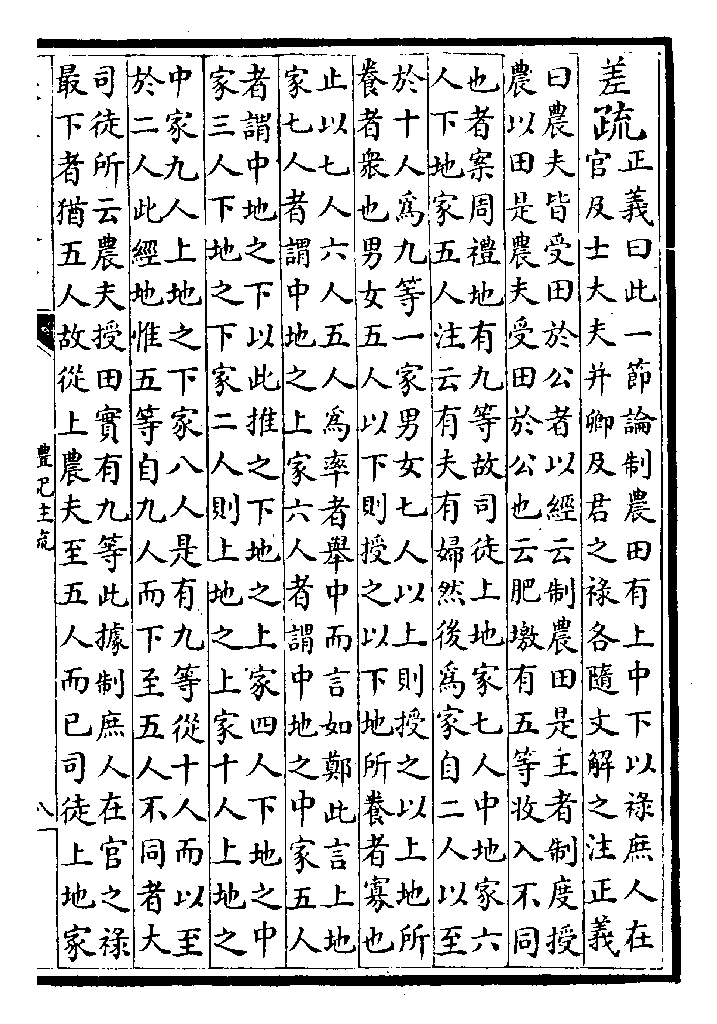 差疏
正義曰此一節論制農田有上中下以祿庶人在
官及士大夫并卿及君之祿各隨文解之注正義
曰農夫皆受田於公者以經云制農田是王者制度授
農以田是農夫受田於公也云肥墽有五等收入不同
也者案周禮地有九等故司徒上地家七人中地家六
人下地家五人注云有夫有婦然後爲家自二人以至
於十人爲九等一家男女七人以上則授之以上地所
養者衆也男女五人以下則授之以下地所養者寡也
止以七人六人五人爲率者舉中而言如鄭此言上地
家七人者謂中地之上家六人者謂中地之中家五人
者謂中地之下以此推之下地之上家四人下地之中
家三人下地之下家二人則上地之上家十人上地之
中家九人上地之下家八人是有九等從十人而以至
於二人此經地惟五等自九人而下至五人不同者大
司徒所云農夫授田實有九等此據制庶人在官之祿
最下者猶五人故從上農夫至五人而已司徒上地家
禮記注疏
八